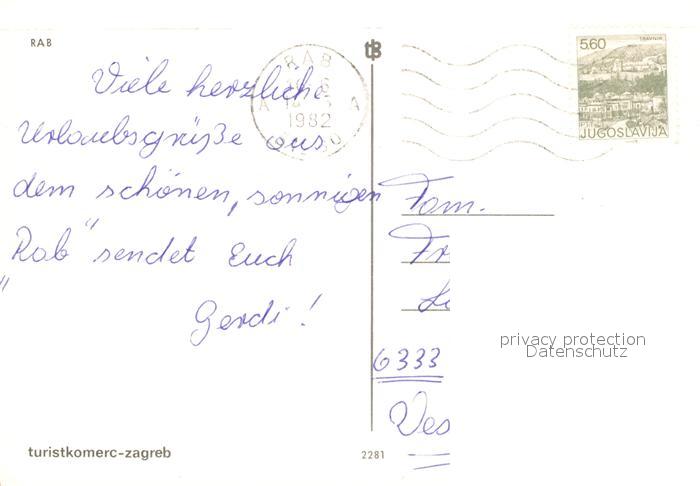 RAB
tB
Viele herzliche
Urlaubsgrüße aus
dem schönen, sonnigen
„Rab" sendet Euch
Gerdi!
turistkomerc-zagreb
2281
RAB
A A
1982
5,60
TRAVNIK
JUGOSLAVIJA
Fam.
Fr
6333
Ves
privacy protection
Datenschutz